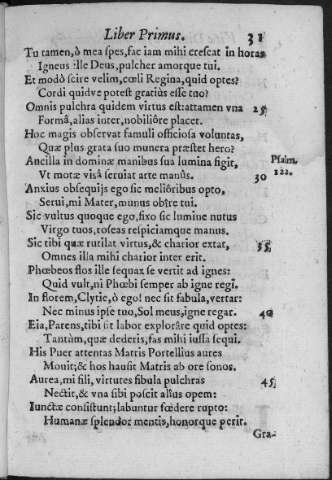 Liber Primus. 31
Tu tamen, ò mea spes, fac iam mihi crescat in horas
Igneus ille Deus, pulcher amorque tui.
Et modò scire velim, cœli Regina, quid optes?
Cordi quidve potest gratiùs esse tuo?
Omnis pulchra quidem virtus est: attamen vna 25
Formâ, alias inter, nobiliôre placet.
Hoc magis observat famuli officiosa voluntas,
Quæ plus grata suo munera præstet hero?
Ancilla in dominæ manibus sua lumina figit, Psalm.
Vt motæ visâ serviat arte manûs. 30 122.
Anxius obsequijs ego sic meliôribus opto,
Servi, mi Mater, munus obîre tui.
Sic vultus quoque ego, fixo sic lumine nutus
Virgo tuos, roseas respiciamque manus.
Sic tibi quæ rutilat virtus, & charior extat, 35
Omnes illa mihi charior inter erit.
Phœbeos flos ille sequax se vertit ad ignes:
Quid vult, ni Phœbi semper ab igne regi.
In florem, Clytie, ò ego! nec sit fabula, vertar:
Nec minus ipse tuo, Sol meus, igne regar. 40
Eia, Parens, tibi sit labor explorâre quid optes:
Tantùm, quæ dederis, fas mihi iussa sequi.
His Puer attentas Matris Portellius aures
Movit; & hos hausit Matris ab ore sonos.
Aurea, mi fili, virtutes fibula pulchras 45
Nectit, & vna sibi poscit alius opem:
Iunctæ consistunt; labuntur fœdere rupto:
Humanæ splendor mentis, honorque perit.
Gra-